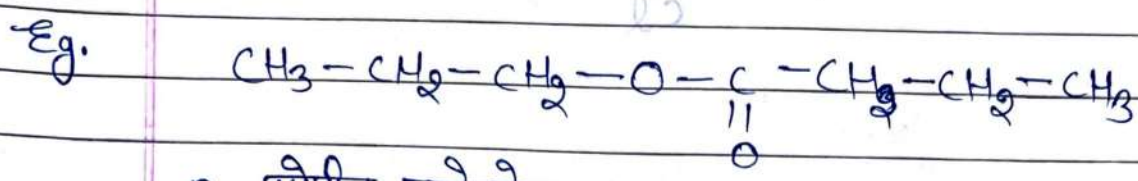 Eg. CH₃-CH₂-CH₂-O-C-CH₂-CH₂-CH₃
||
O